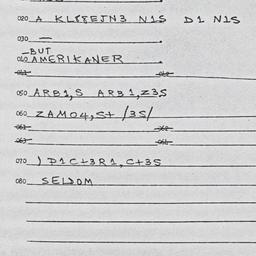 020 A KLEEJN3 N1S D1 N1S
030 —
BUT
040 AMERIKANER
050 ARB1,S ARB1,Z3S
060 ZAMO4,S+ /3S/
070 ) D1C+3R1,C+3S
080 SELDOM